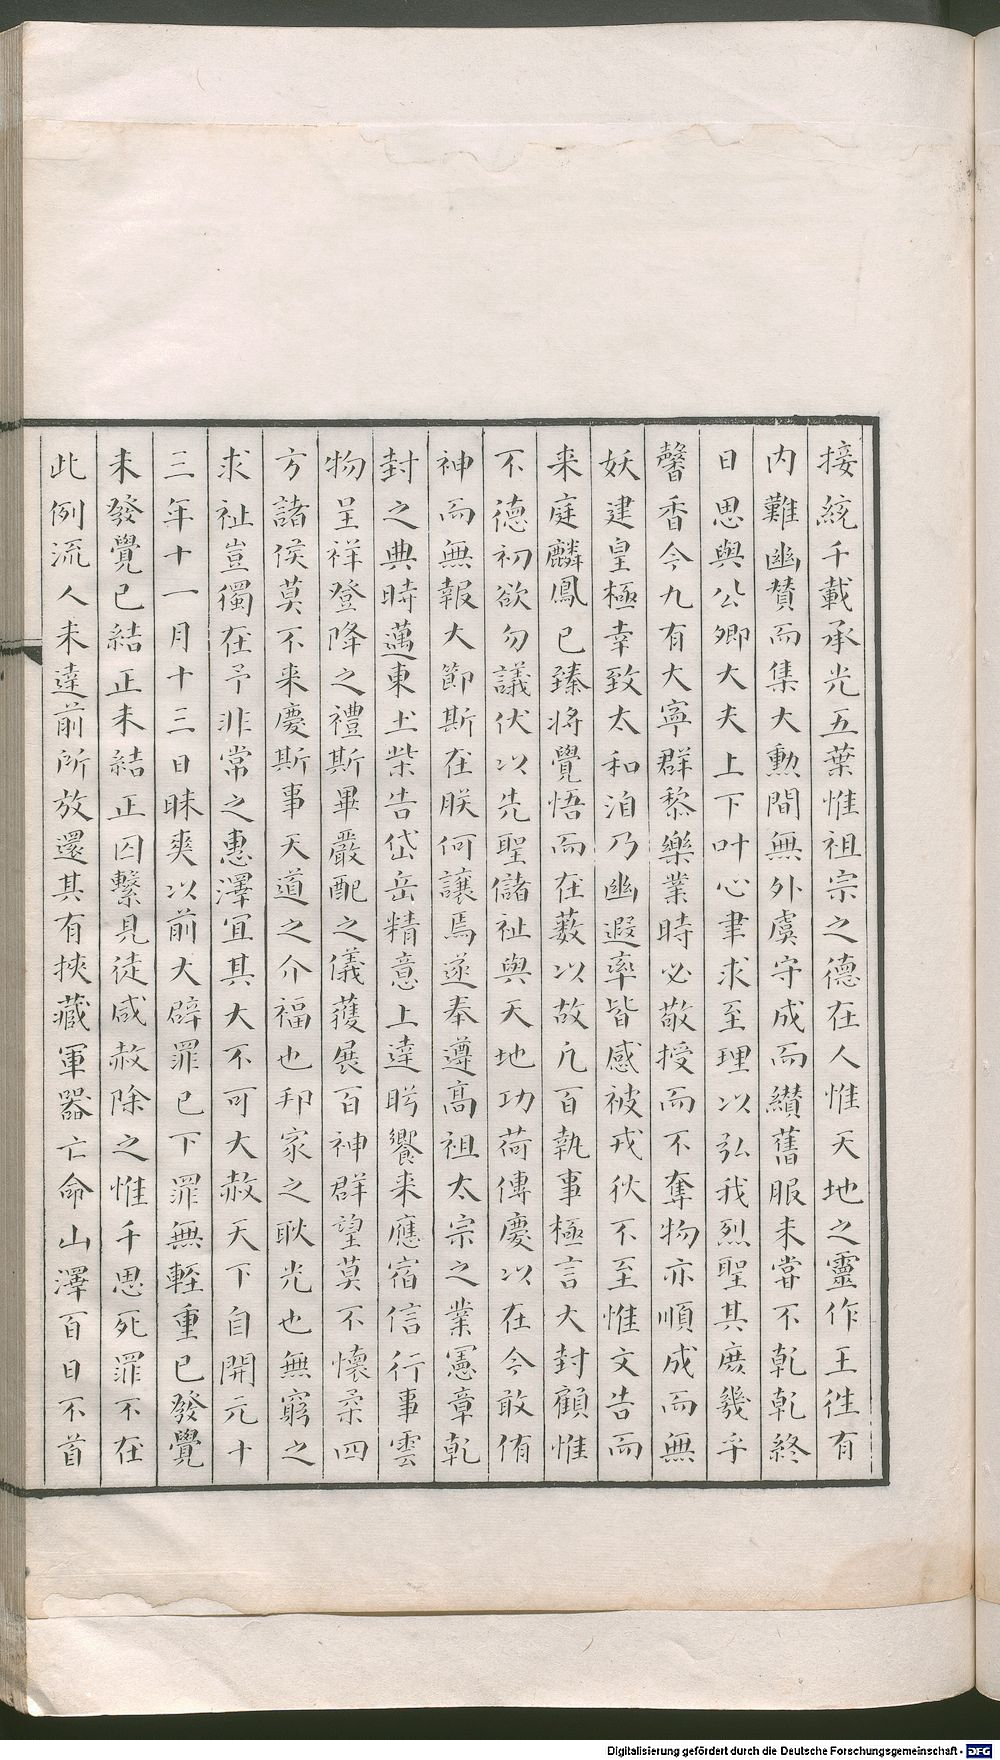 接統千載承光五葉惟祖宗之德在人惟天地之靈作王徃有
內難幽贊而集大勲間無外虞守成而纉舊服未甞不乹乹終
日思與公卿大夫上下叶心聿求至理以弘我烈聖其庶幾乎
馨香今九有大寧群黎樂業時必敬授而不奪物亦順成而無
妖建皇極幸致太和洎乃幽遐率皆感被戎狄不至惟文告而
来庭麟鳳已臻將覺悟而在藪以故凢百執事極言大封顧惟
不德初欲勿議伏以先聖儲祉與天地功荷傳慶以在今敢侑
神而無報大節斯在朕何讓焉遂奉遵髙祖太宗之業憲章乹
封之典時邁東土柴告岱岳精意上逹肹饗来應宿信行事雲
物呈祥登降之禮斯畢嚴配之儀獲展百神群望莫不懷柔四
方諸侯莫不来慶斯事天道之介福也邦家之耿光也無窮之
求祉豈獨在予非常之惠澤宜其大不可大赦天下自開元十
三年十一月十三日昧爽以前大辟罪已下罪無輊重已發覺
未發覺已結正未結正囚繫見徒咸赦除之惟千思死罪不在
此例流人未逹前所放還其有挾藏軍器亡命山澤百日不首
Digitalisierung gefördert durch die Deutsche Forschungsgemeinschaft - DFG